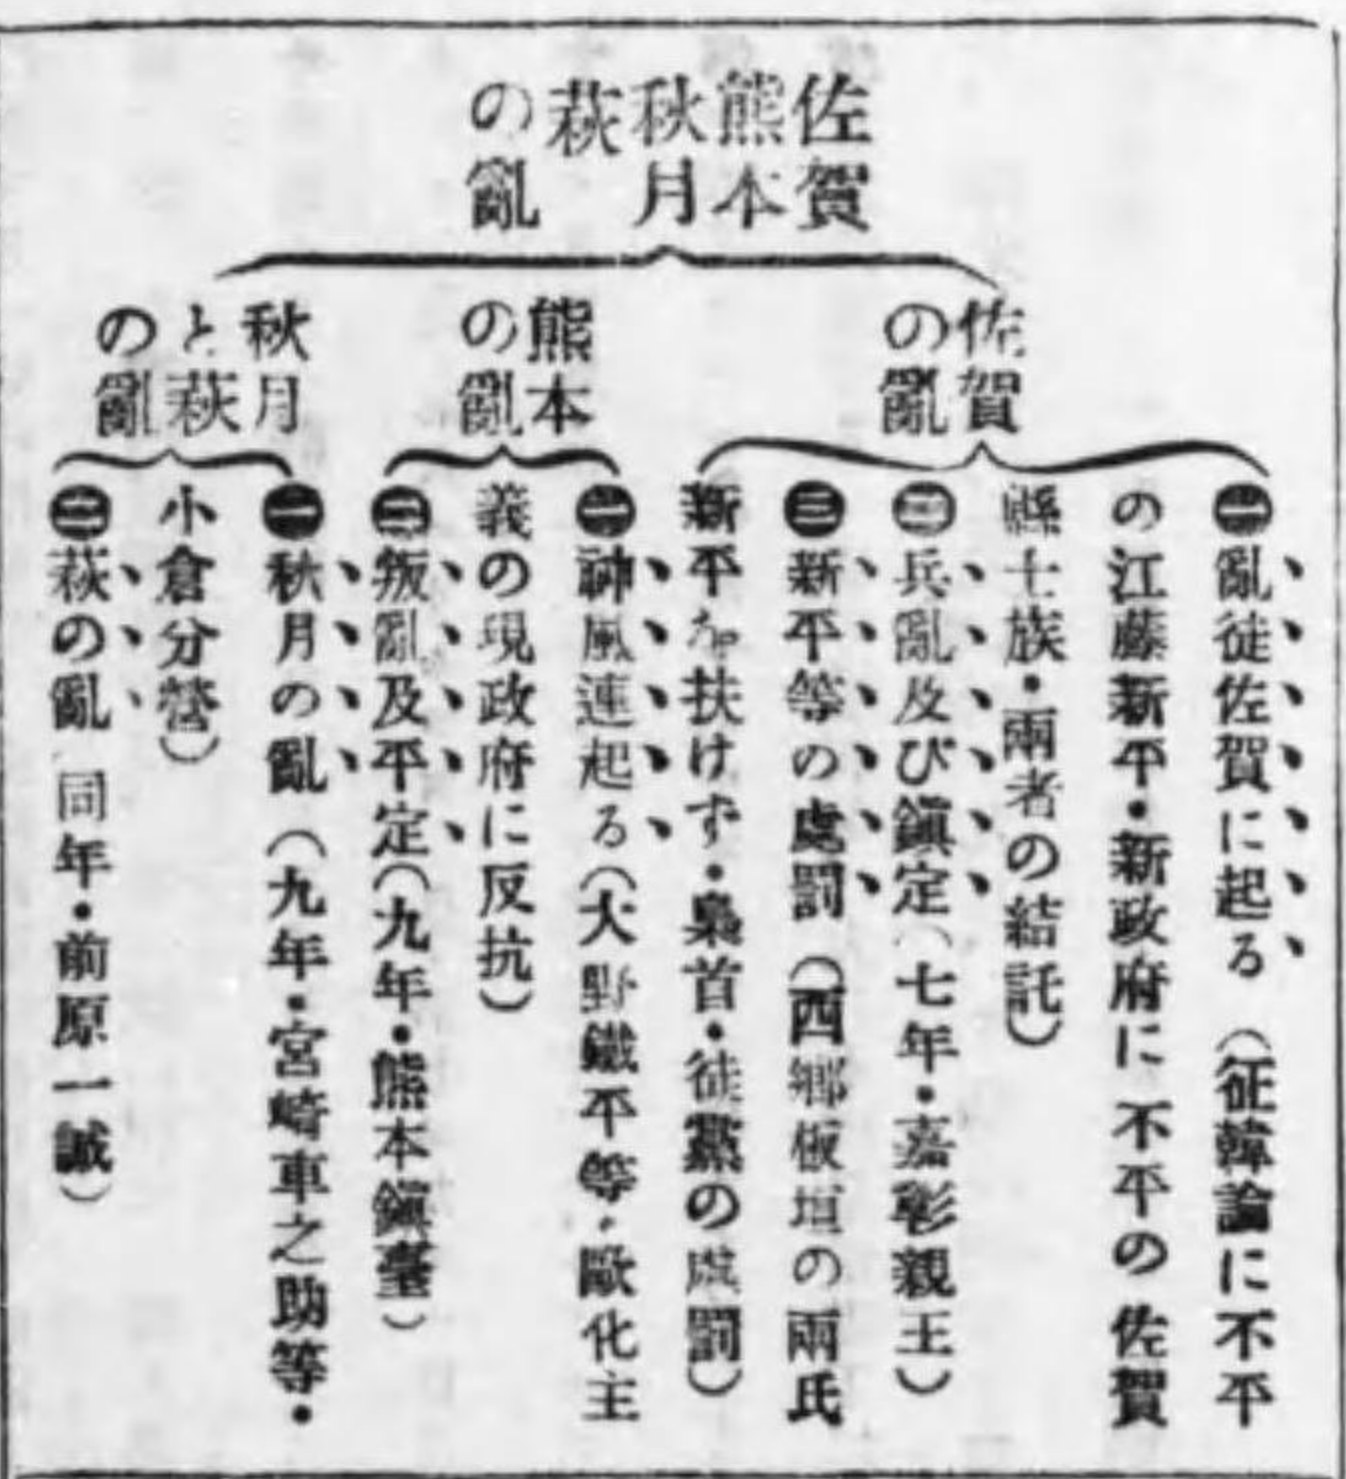 佐賀
熊本
秋月
萩
の亂
佐賀
の亂
㊀亂徒佐賀に起る（征韓論に不平
の江藤新平・新政府に不平の佐賀
縣士族・兩者の結託）
㊁兵亂及び鎭定（七年・嘉彰親王）
㊂新平等の處罰（西郷板垣の兩氏
新平を扶けず・梟首・徒黨の處罰）
熊本
の亂
㊀神風連起る（大野鐵平等・歐化主
義の現政府に反抗）
㊁叛亂及平定（九年・熊本鎭臺）
秋月
と萩
の亂
㊀秋月の亂（九年・宮崎車之助等・
小倉分營）
㊁萩の亂 同年・前原一誠）